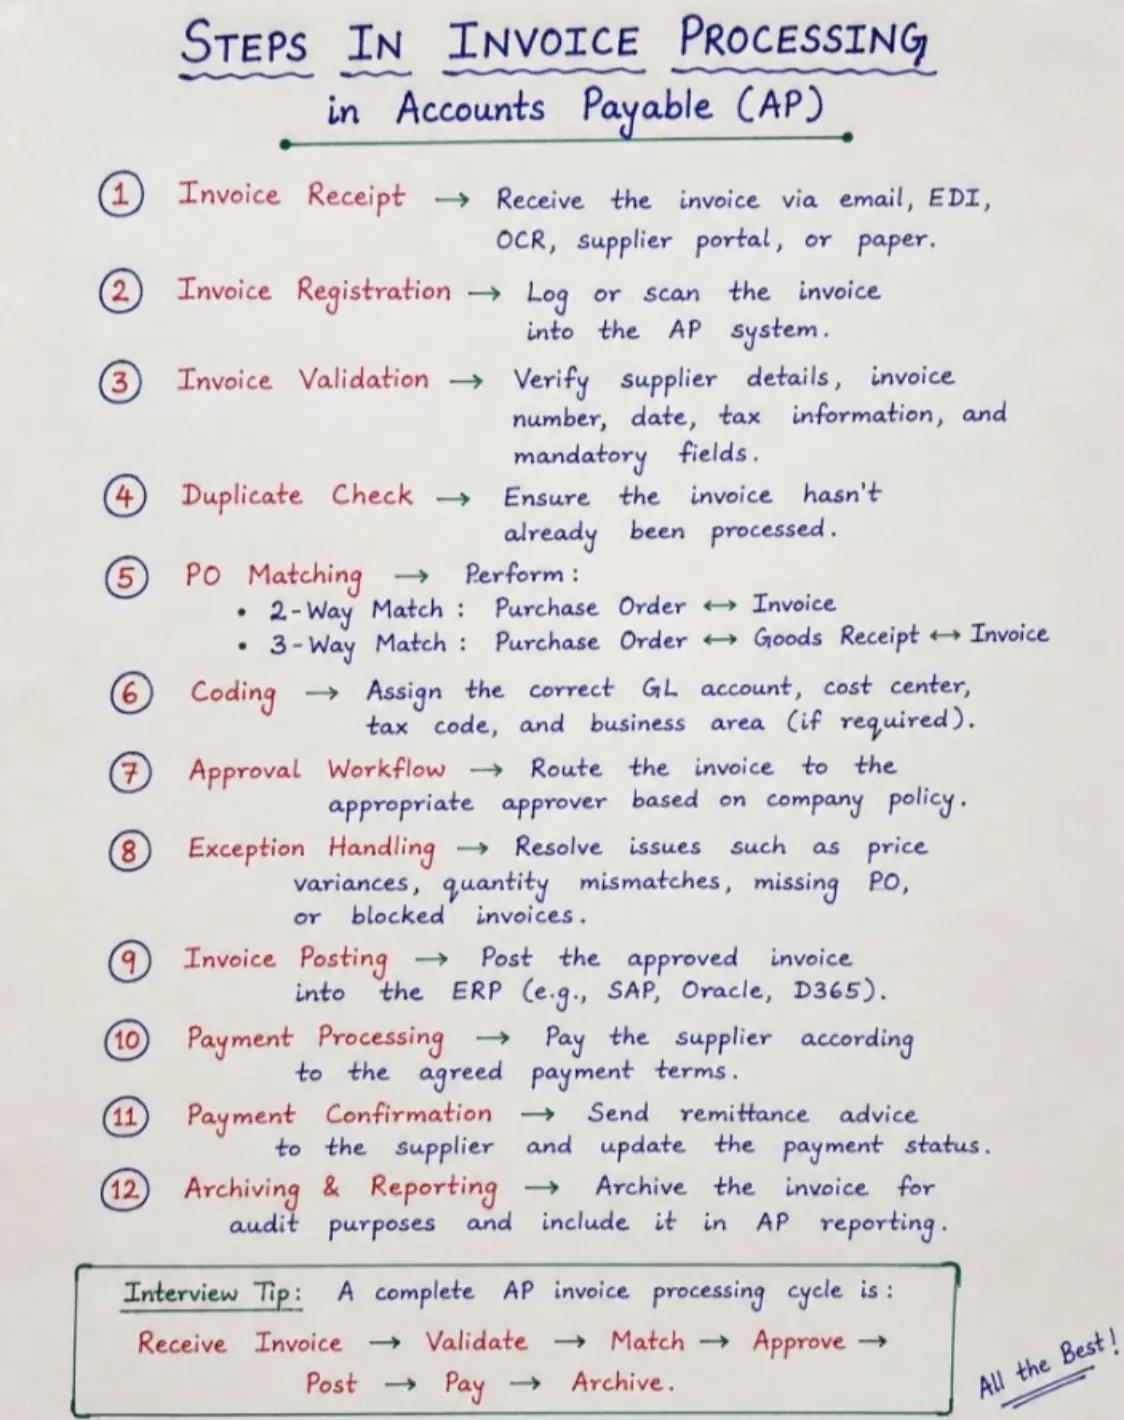 STEPS IN INVOICE PROCESSING
in Accounts Payable (AP)
1 Invoice Receipt → Receive the invoice via email, EDI,
OCR, supplier portal, or paper.
2 Invoice Registration → Log or scan the invoice
into the AP system.
3 Invoice Validation → Verify supplier details, invoice
number, date, tax information, and
mandatory fields.
4 Duplicate Check → Ensure the invoice hasn't
already been processed.
5 PO Matching → Perform:
• 2-Way Match : Purchase Order ↔ Invoice
• 3-Way Match : Purchase Order ↔ Goods Receipt ↔ Invoice
6 Coding → Assign the correct GL account, cost center,
tax code, and business area (if required).
7 Approval Workflow → Route the invoice to the
appropriate approver based on company policy.
8 Exception Handling → Resolve issues such as price
variances, quantity mismatches, missing PO,
or blocked invoices.
9 Invoice Posting → Post the approved invoice
into the ERP (e.g., SAP, Oracle, D365).
10 Payment Processing → Pay the supplier according
to the agreed payment terms.
11 Payment Confirmation → Send remittance advice
to the supplier and update the payment status.
12 Archiving & Reporting → Archive the invoice for
audit purposes and include it in AP reporting.
Interview Tip: A complete AP invoice processing cycle is :
Receive Invoice → Validate → Match → Approve →
Post → Pay → Archive.
All the Best!